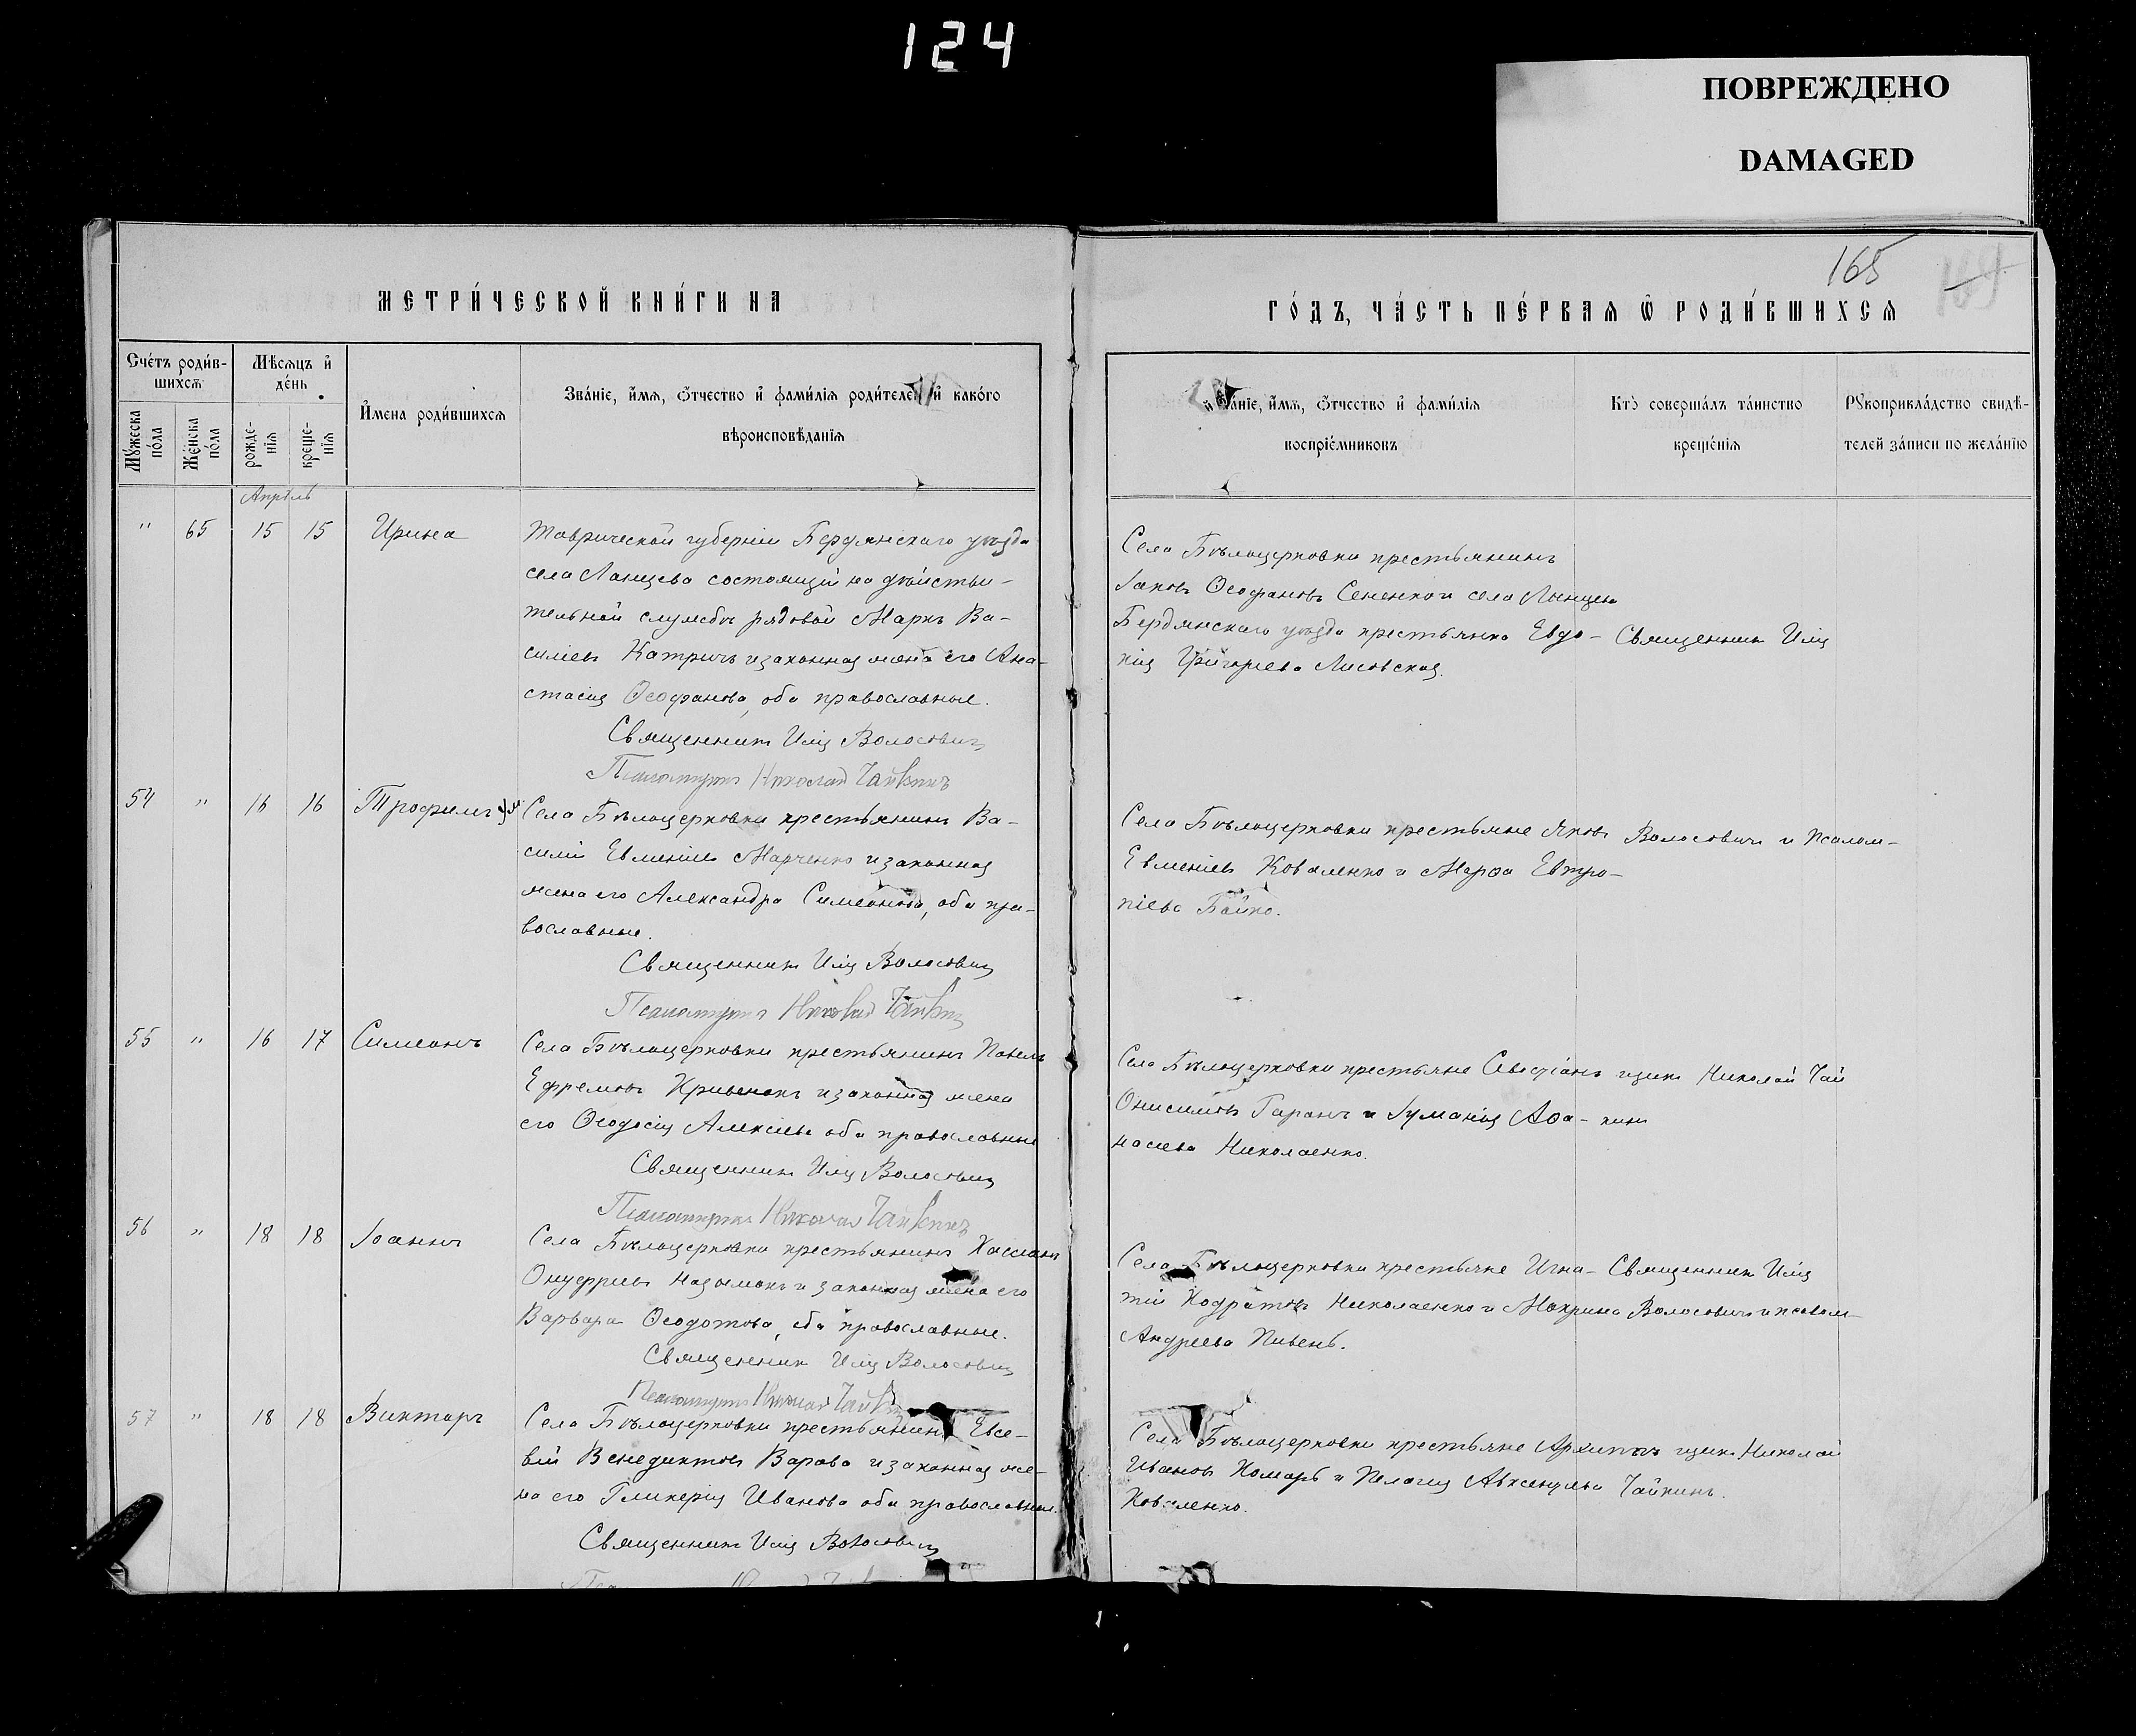 124
ПОВРЕЖДЕНО
DAMAGED
165
169
МЕТРИ́ЧЕСКОЙ КНИ́ГИ НА
ГО́ДЪ, ЧА́СТЬ ПЕ́РВАЯ Ѿ РОДИ́ВШИХСЯ
Сче́тъ роди́в-
шихсѧ
Мѣ́сѧцъ и҆
де́нь
И҆мена роди́вшихсѧ
Зва́ніе, и҆́мѧ, ѻ҆́тчество и҆ фами́лія роди́телей и҆ како́го
вѣроисповѣ́данія
Мꙋ́жеска
по́ла
Же́нска
по́ла
рожде-
нія
креще-
нія
Зва́ніе, и҆́мѧ, ѻ҆́тчество и҆ фами́лія
воспріе́мниковъ
Кто̀ соверша́лъ та́инство
креще́нія
Рꙋкоприкла́дство свидѣ́-
телей за́писи по жела́нію
Апрѣль
" 65 15 15 Ирина
Таврической губерніи Бердянскаго уѣзда
села состоящій на дѣйстви-
тельной службѣ рядовой Маркъ Ва-
силіевъ Катричъ и законная жена его Ана-
стасія Ѳеофанова, оба православные.
Священникъ Илія Волосовичъ
Псаломщикъ Николай Чайкинъ
Села Бѣлоцерковки крестьянинъ
Іаковъ Ѳеофановъ Сененко и села
Бердянскаго уѣзда крестьянка Евдо-
кія Григоріева Лисовская.
Священникъ Илія
54 " 16 16 Трофимъ
Села Бѣлоцерковки крестьянинъ Ва-
силій Евменіевъ Марченко и законная
жена его Александра Симеонова, оба пра-
вославные.
Священникъ Илія Волосовичъ
Псаломщикъ Николай Чайкинъ
Села Бѣлоцерковки крестьяне Яковъ
Евменіевъ Коваленко и Марѳа Евтро-
піева Бойко.
Волосовичъ и псалом-
55 " 16 17 Симеонъ
Села Бѣлоцерковки крестьянинъ Павелъ
Ефремовъ и законная жена
его Ѳеодосія Алексіева оба православные
Священникъ Илія Волосовичъ
Псаломщикъ Николай Чайкинъ
Села Бѣлоцерковки крестьяне
Онисимовъ Гаранъ и Аѳа-
насіева Николаенко.
щикъ Николай Чай
кинъ
56 " 18 18 Іоаннъ
Села Бѣлоцерковки крестьянинъ Кассіанъ
Онуфріевъ и законная жена его
Варвара Ѳеодотова, оба православные.
Священникъ Илія Волосовичъ
Псаломщикъ Николай Чайкинъ
Села Бѣлоцерковки крестьяне Игна-
тій Кодратовъ Николаенко и Макрина
Андреева Пивень.
Священникъ Илія
Волосовичъ и псалом-
57 " 18 18 Викторъ
Села Бѣлоцерковки крестьянинъ Евсе-
вій Венедиктовъ Варава и законная же-
на его Гликерія Иванова оба православные.
Священникъ Илія Волосовичъ
Села Бѣлоцерковки крестьяне Архиппъ
Ивановъ Комаръ и Пелагія Авксентіева
Коваленко.
щикъ Николай
Чайкинъ.